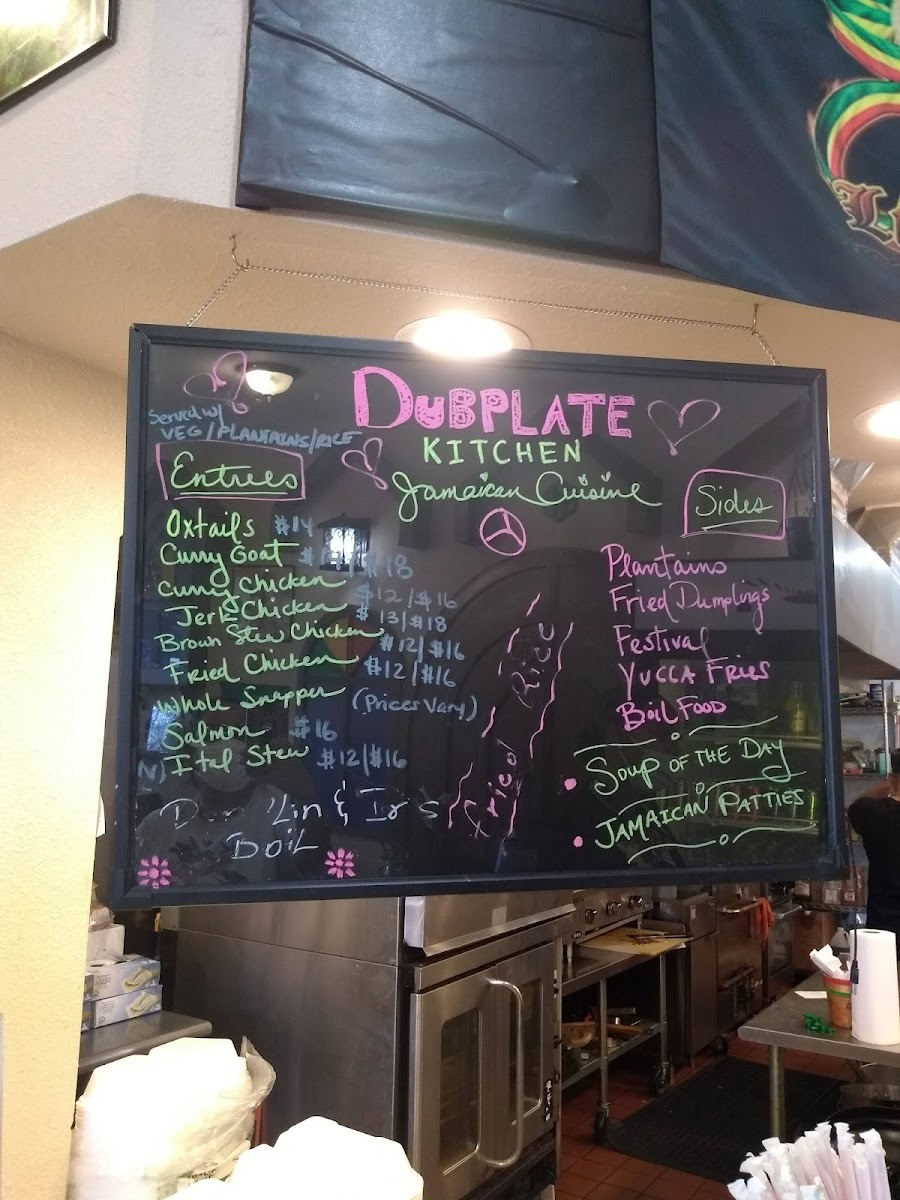 DUBPLATE
KITCHEN
Jamaican Cuisine
Served w/
VEG/PLANTAINS/RICE
Entrees
Oxtails $14
Curry Goat $18
Curry Chicken $12/$16
Jerk Chicken $13/$18
Brown Stew Chicken $12/$16
Fried Chicken $12/$16
Whole Snapper (Prices Vary)
Salmon $16
Ital Stew $12/$16
BOIL
Fried Rice
Sides
Plantains
Fried Dumplings
Festival
YUCCA FRIES
BOIL FOOD
SOUP OF THE DAY
JAMAICAN PATTIES